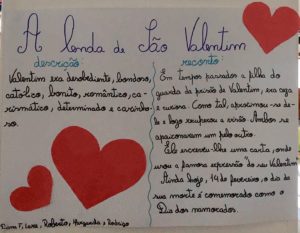 A lenda de São Valentim
descrição:
Valentim era desobediente, bondoso,
católico, bonito, romântico, ca-
rismático, determinado e carinho-
so.
reconto:
Em tempos passados a filha do
guarda da prisão de Valentim, era cega
e curiosa. Como tal, aproximou-se de-
le e logo recuperou a visão. Ambos se
apaixonaram um pelo outro.
Ele escreveu-lhe uma carta, onde
usou a famosa expressão "Do seu Valentim".
Ainda hoje, 14 de fevereiro, o dia da
sua morte é comemorado como o
Dia dos namorados.
Diana F, Lara, Roberto, Margarida, Rodrigo